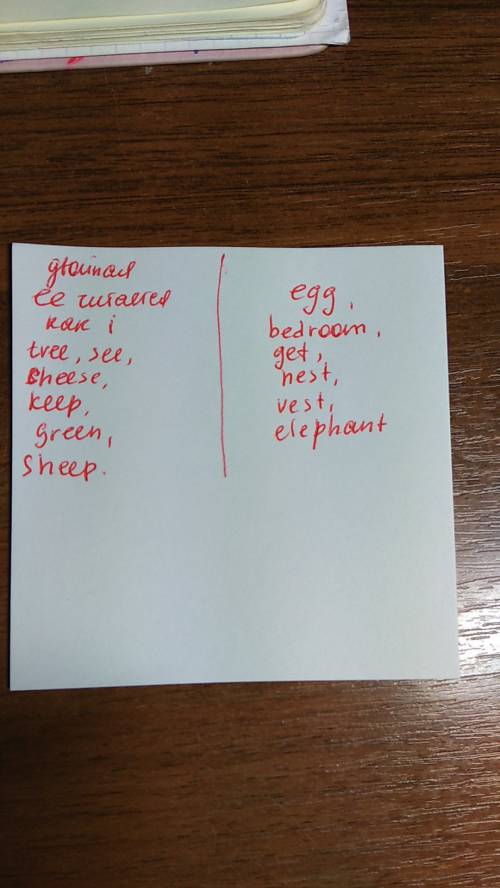 двойная
ee читается
как i
tree, see,
cheese,
keep,
green,
sheep.
egg,
bedroom,
get,
nest,
vest,
elephant